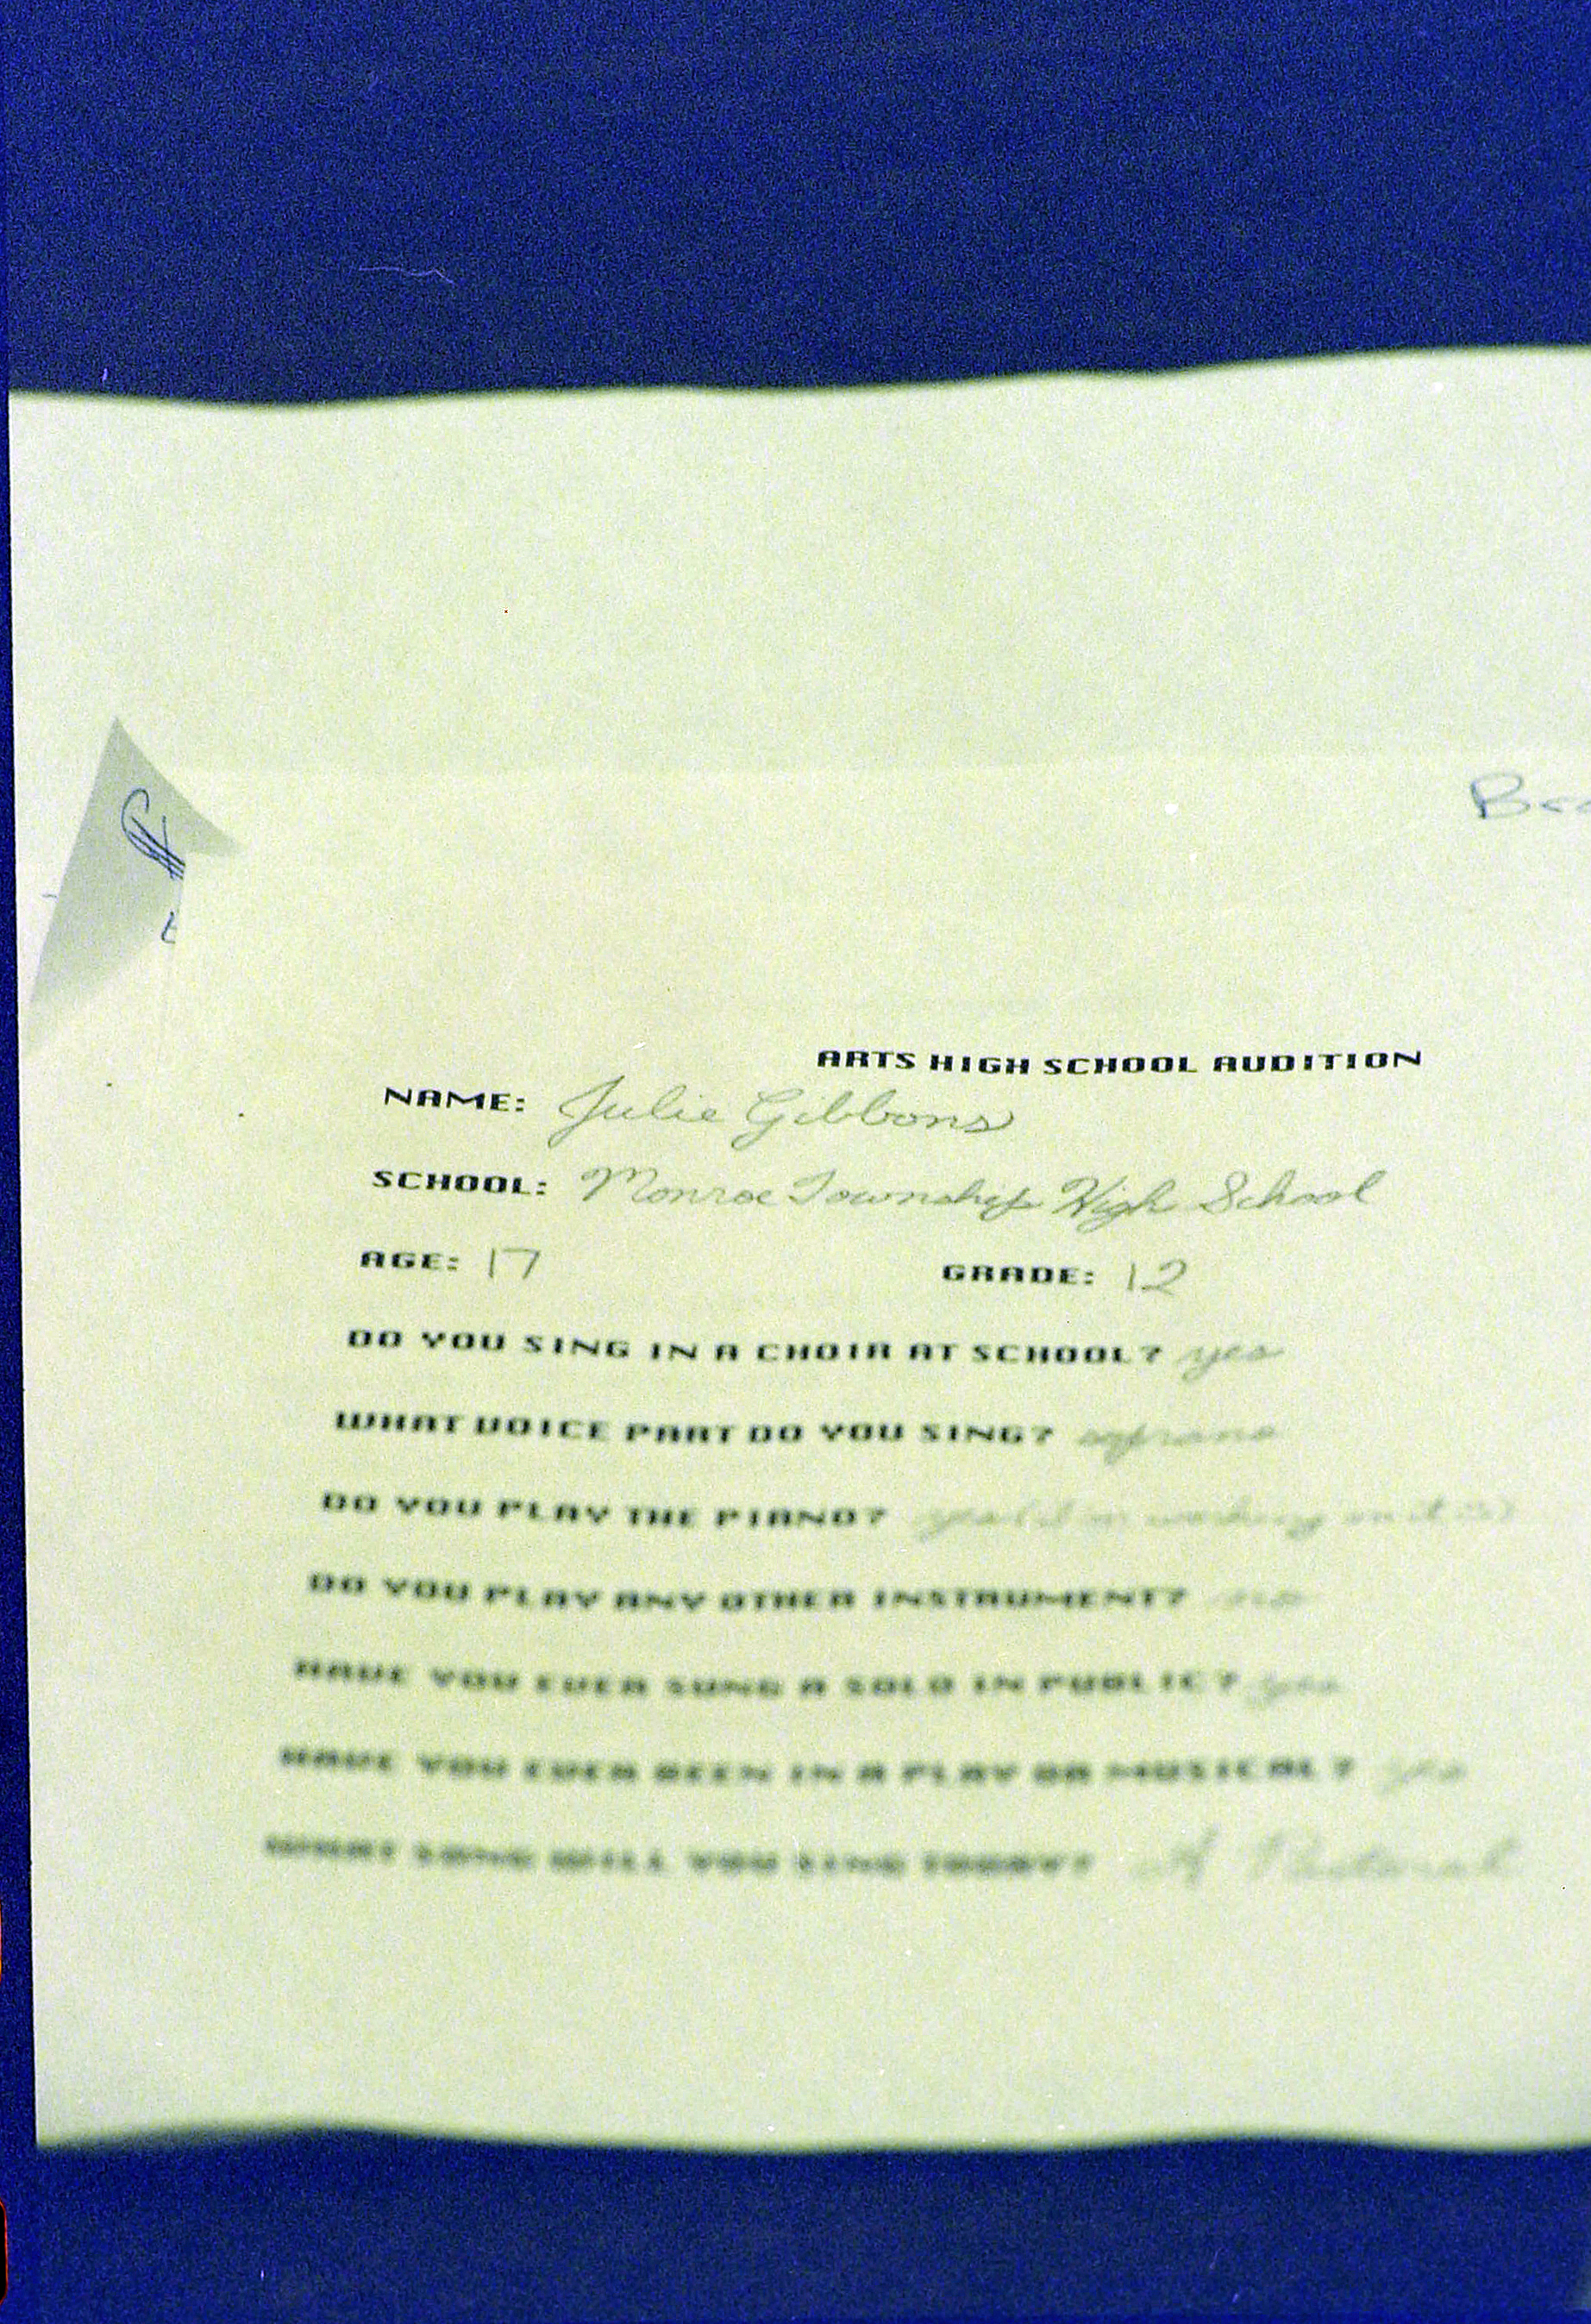 ARTS HIGH SCHOOL AUDITION
NAME: Julie Gibbons
SCHOOL: Monroe Township High School
AGE: 17 GRADE: 12
DO YOU SING IN A CHOIR AT SCHOOL? yes
WHAT VOICE PART DO YOU SING? soprano
DO YOU PLAY THE PIANO? working on it
DO YOU PLAY ANY OTHER INSTRUMENT? no
HAVE YOU EVER SUNG A SOLO IN PUBLIC? yes
HAVE YOU EVER BEEN IN A PLAY OR MUSICAL? yes
WHAT SONG WILL YOU SING TODAY? A Pastoral